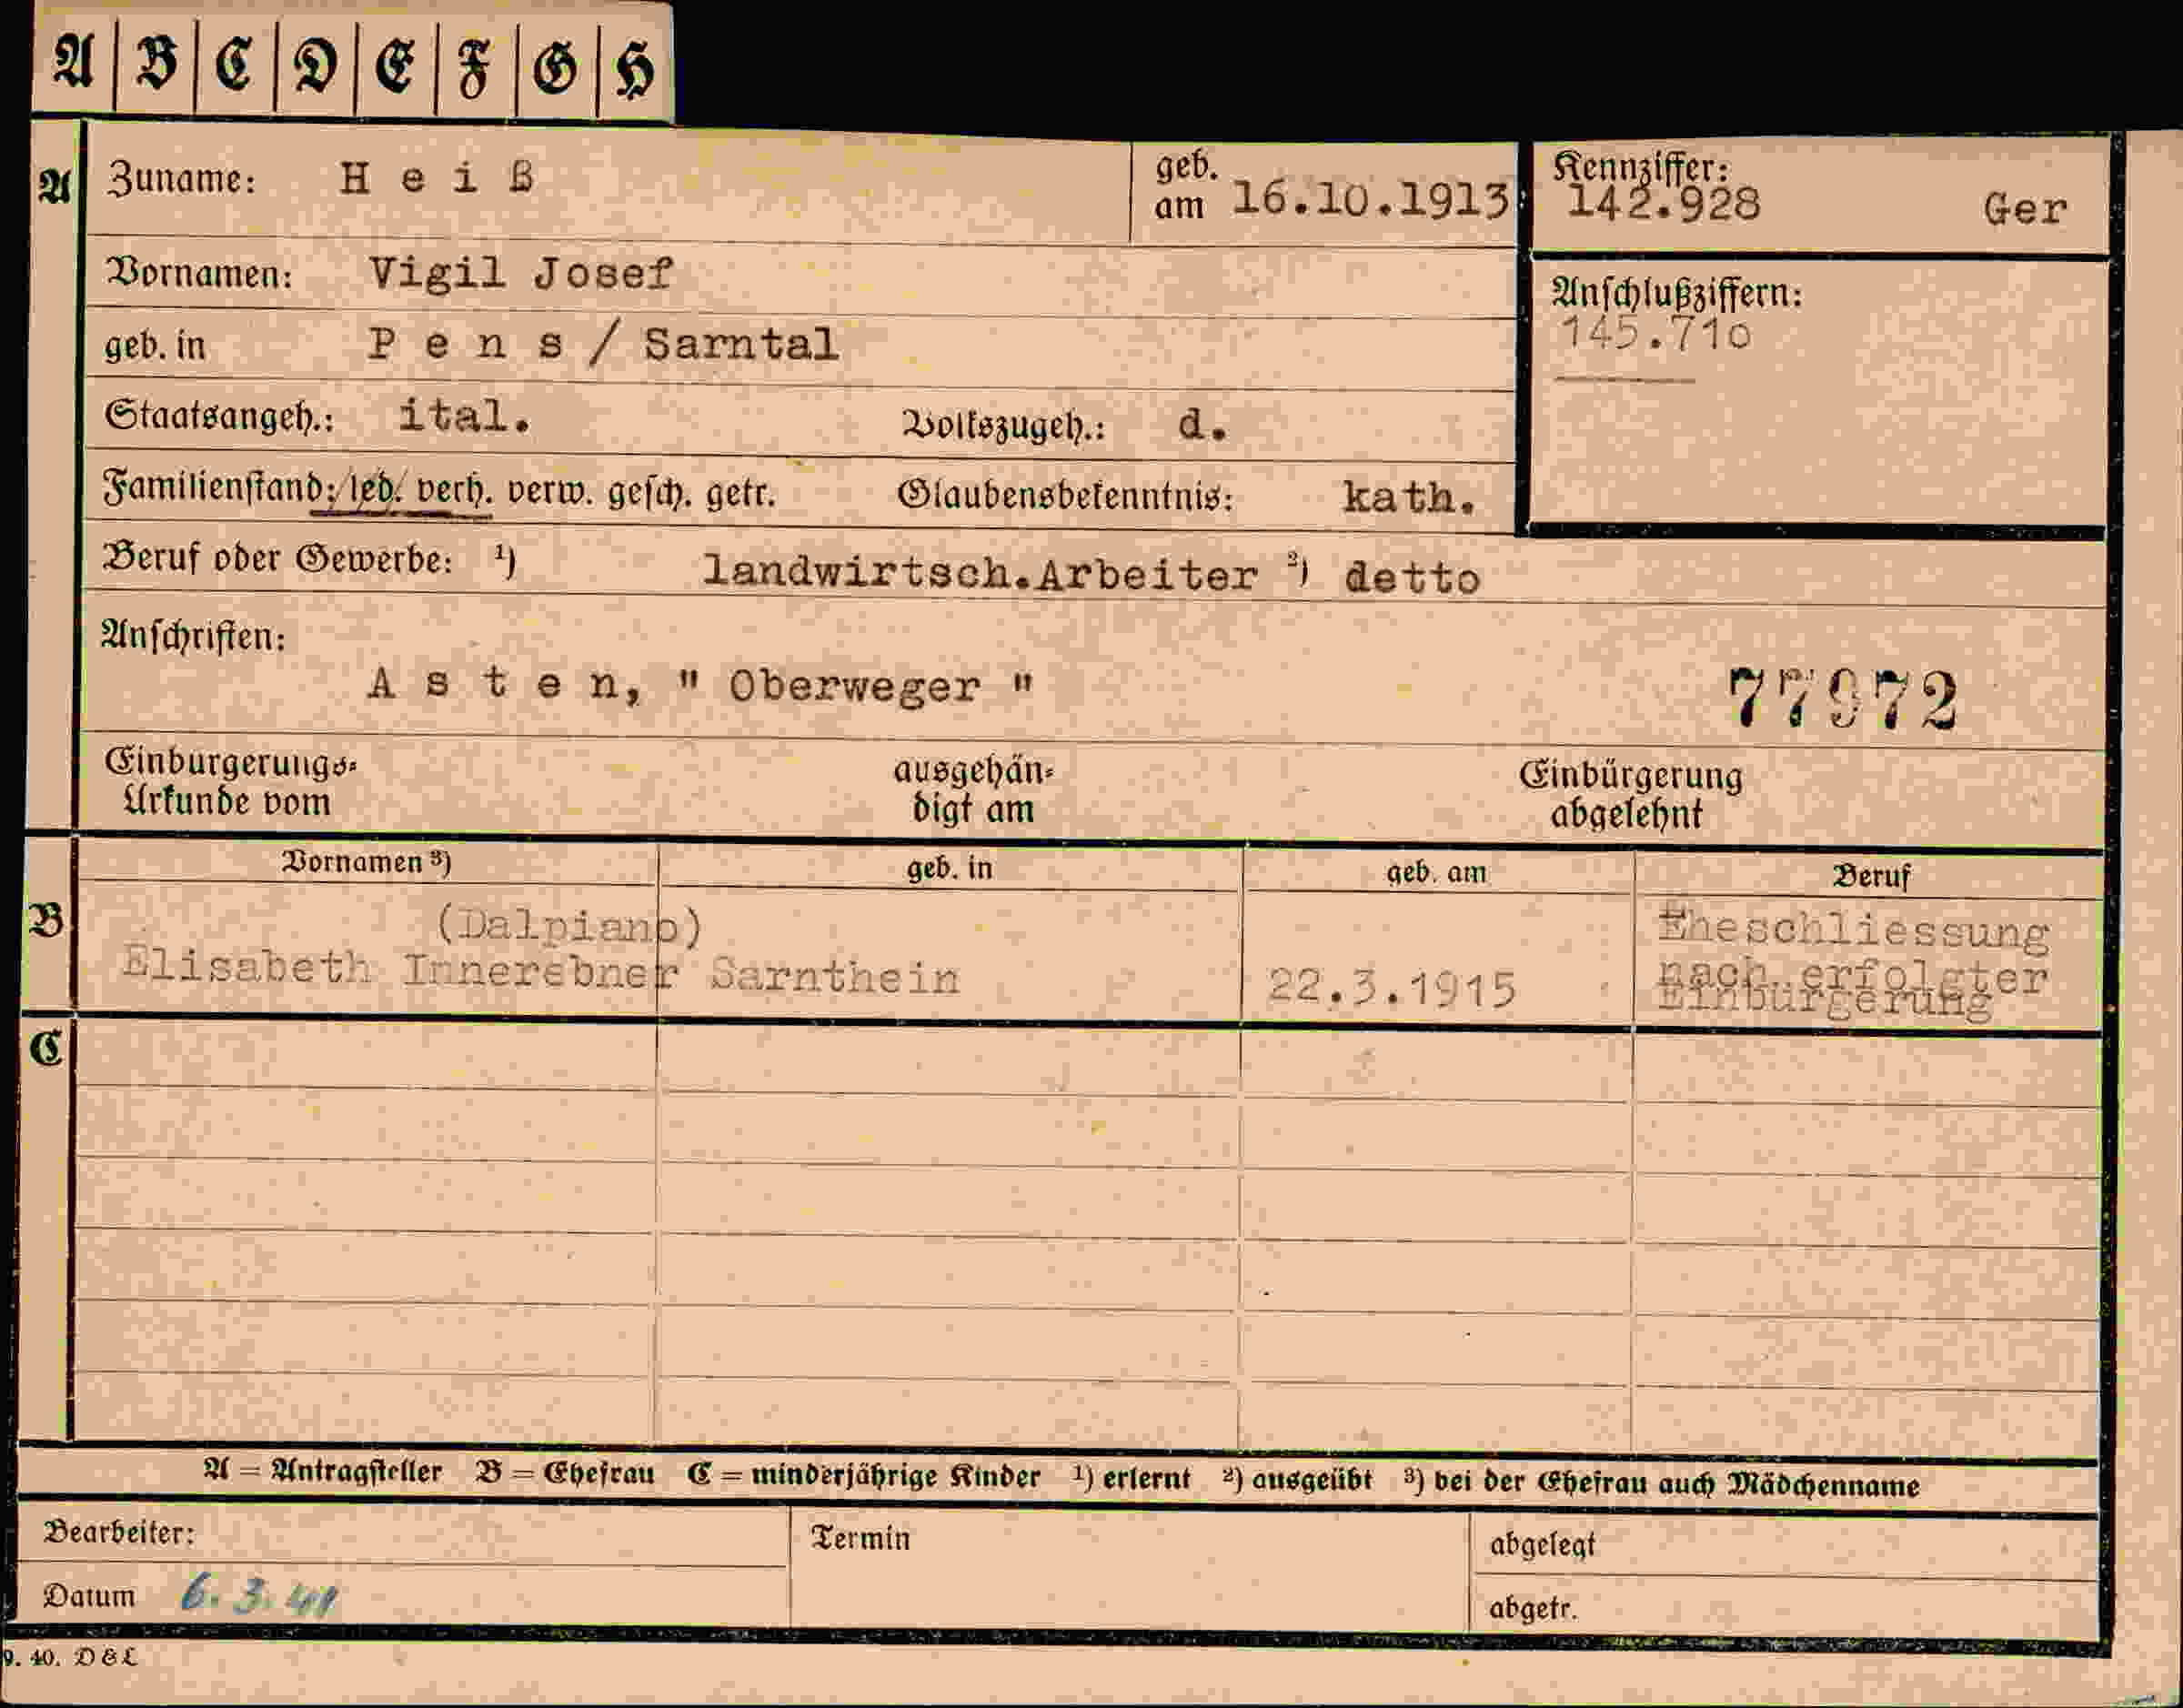 A B C D E F G H
A Zuname: Heiß geb. am 16.10.1913 Kennziffer: 142.928 Ger
Vornamen: Vigil Josef
Anschlußziffern:
145.710
geb. in Pens / Sarntal
Staatsangeh.: ital. Volkszugeh.: d.
Familienstand: led. verh. verw. gesch. getr. Glaubensbekenntnis: kath.
Beruf oder Gewerbe: ¹) landwirtsch.Arbeiter ²) detto
Anschriften:
Asten, " Oberweger "
77972
Einbürgerungs- ausgehän- Einbürgerung
Urkunde vom digt am abgelehnt
Vornamen ³) geb. in geb. am Beruf
B (Dalpiano) Eheschliessung
Elisabeth Innerebner Sarnthein 22.3.1915 nach erfolgter
Einbürgerung
C
A = Antragsteller B = Ehefrau C = minderjährige Kinder ¹) erlernt ²) ausgeübt ³) bei der Ehefrau auch Mädchenname
Bearbeiter: Termin abgelegt
Datum 6.3.41 abgetr.
9. 40. D & L